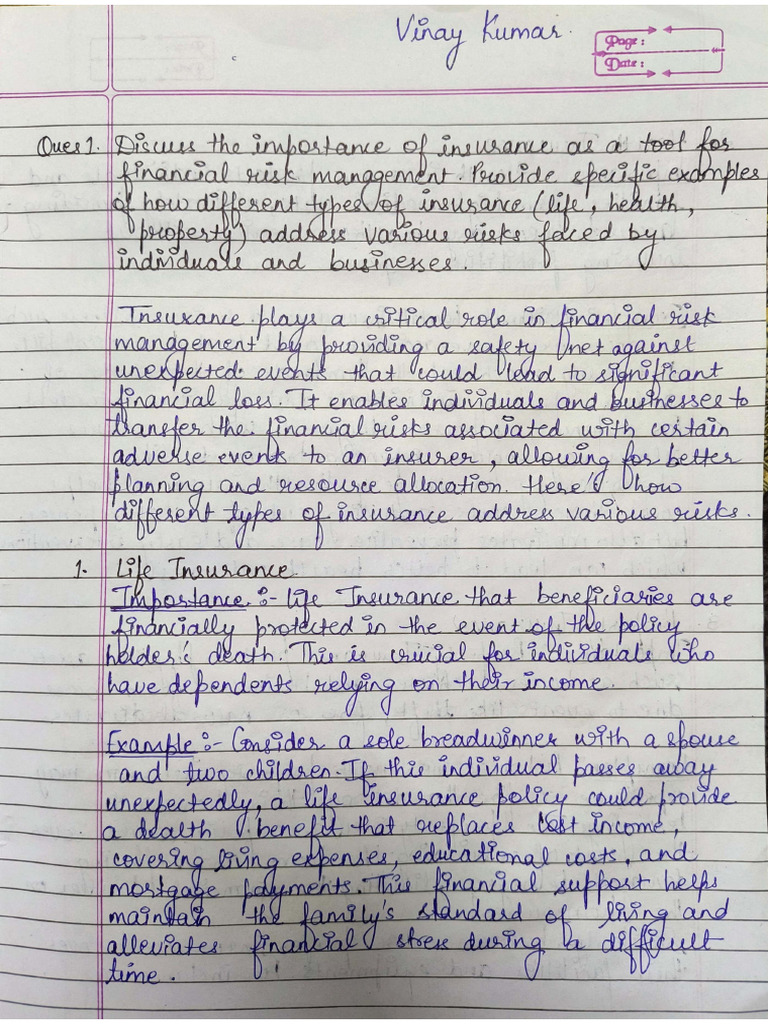 Vinay Kumar.
Page:
Date:
Ques 1. Discuss the importance of insurance as a tool for
financial risk management. Provide specific examples
of how different types of insurance (life, health,
property) address various risks faced by
individuals and businesses.
Insurance plays a critical role in financial risk
management by providing a safety net against
unexpected events that could lead to significant
financial loss. It enables individuals and businesses to
transfer the financial risks associated with certain
adverse events to an insurer, allowing for better
planning and resource allocation. Here's how
different types of insurance address various risks.
1. Life Insurance
Importance :- Life Insurance that beneficiaries are
financially protected in the event of the policy
holder's death. This is crucial for individuals who
have dependents relying on their income.
Example :- Consider a sole breadwinner with a spouse
and two children. If this individual passes away
unexpectedly, a life insurance policy could provide
a dealth benefit that replaces lost income,
covering living expenses, educational costs, and
mortgage payments. This financial support helps
maintain the family's standard of living and
alleviates financial stress during a difficult
time.